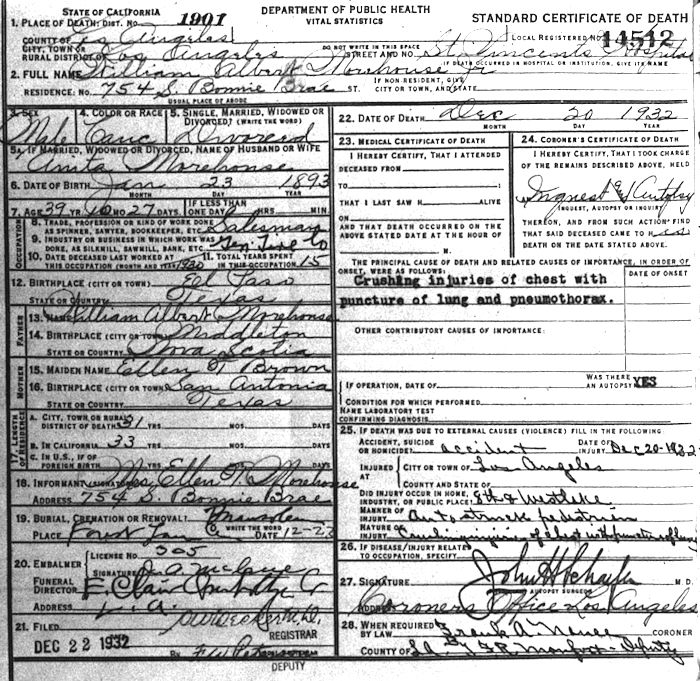 STATE OF CALIFORNIA
DEPARTMENT OF PUBLIC HEALTH
VITAL STATISTICS
STANDARD CERTIFICATE OF DEATH
1. PLACE OF DEATH: DIST. NO. 1901
LOCAL REGISTERED NO. 14512
COUNTY OF Los Angeles
CITY, TOWN OR RURAL DISTRICT OF Los Angeles
DO NOT WRITE IN THIS SPACE
STREET AND NO. St. Vincents Hospital
IF DEATH OCCURRED IN HOSPITAL OR INSTITUTION, GIVE ITS NAME
2. FULL NAME William Albert Morehouse Jr
IF NON-RESIDENT, GIVE CITY OR TOWN, AND STATE
RESIDENCE: NO. 754 S. Bonnie Brae ST.
USUAL PLACE OF ABODE
3. SEX Male
4. COLOR OR RACE Cauc
5. SINGLE, MARRIED, WIDOWED OR DIVORCED? (WRITE THE WORD) Divorced
5A. IF MARRIED, WIDOWED OR DIVORCED, NAME OF HUSBAND OR WIFE
Anita Morehouse
6. DATE OF BIRTH Jan 23 1893
MONTH DAY YEAR
7. AGE 39 YRS 10 MOS 27 DAYS
IF LESS THAN ONE DAY HRS MIN
OCCUPATION
8. TRADE, PROFESSION OR KIND OF WORK DONE AS SPINNER, SAWYER, BOOKKEEPER, ETC. Salesman
9. INDUSTRY OR BUSINESS IN WHICH WORK WAS DONE, AS SILKMILL, SAWMILL, BANK, ETC.
10. DATE DECEASED LAST WORKED AT THIS OCCUPATION (MONTH AND YEAR) 1930
11. TOTAL YEARS SPENT IN THIS OCCUPATION 15
12. BIRTHPLACE (CITY OR TOWN) El Paso
STATE OR COUNTRY Texas
FATHER
13. NAME William Albert Morehouse
14. BIRTHPLACE (CITY OR TOWN) Middleton
STATE OR COUNTRY Nova Scotia
MOTHER
15. MAIDEN NAME Ellen T Brown
16. BIRTHPLACE (CITY OR TOWN) San Antonia
STATE OR COUNTRY Texas
17. LENGTH OF RESIDENCE
A. CITY, TOWN OR RURAL DISTRICT OF DEATH 31 YRS MOS DAYS
B. IN CALIFORNIA 33 YRS MOS DAYS
C. IN U.S., IF OF FOREIGN BIRTH YRS MOS DAYS
18. INFORMANT (SIGNATURE) Mrs. Ellen T. Morehouse
ADDRESS 754 S. Bonnie Brae
19. BURIAL, CREMATION OR REMOVAL?
WRITE THE WORD
PLACE Forest Lawn DATE 12-23
20. EMBALMER LICENSE NO. 305
SIGNATURE
FUNERAL DIRECTOR
ADDRESS L.A.
21. FILED DEC 22 1932
REGISTRAR
BY
DEPUTY
22. DATE OF DEATH Dec 20 1932
MONTH DAY YEAR
23. MEDICAL CERTIFICATE OF DEATH
I HEREBY CERTIFY, THAT I ATTENDED DECEASED FROM
TO
THAT I LAST SAW H ALIVE ON
AND THAT DEATH OCCURRED ON THE ABOVE STATED DATE AT THE HOUR OF M.
24. CORONER'S CERTIFICATE OF DEATH
I HEREBY CERTIFY, THAT I TOOK CHARGE OF THE REMAINS DESCRIBED ABOVE, HELD
Inquest & Autopsy
(INQUEST, AUTOPSY OR INQUIRY)
THEREON, AND FROM SUCH ACTION FIND THAT SAID DECEASED CAME TO his DEATH ON THE DATE STATED ABOVE.
THE PRINCIPAL CAUSE OF DEATH AND RELATED CAUSES OF IMPORTANCE, IN ORDER OF ONSET, WERE AS FOLLOWS:
DATE OF ONSET
Crushing injuries of chest with
puncture of lung and pneumothorax.
OTHER CONTRIBUTORY CAUSES OF IMPORTANCE:
IF OPERATION, DATE OF
WAS THERE AN AUTOPSY? YES
CONDITION FOR WHICH PERFORMED
NAME LABORATORY TEST CONFIRMING DIAGNOSIS
25. IF DEATH WAS DUE TO EXTERNAL CAUSES (VIOLENCE) FILL IN THE FOLLOWING
ACCIDENT, SUICIDE OR HOMICIDE? accident DATE OF INJURY Dec 20-1932
INJURED AT CITY OR TOWN OF Los Angeles
COUNTY AND STATE OF
DID INJURY OCCUR IN HOME, INDUSTRY, OR PUBLIC PLACE? 8th & Westlake
MANNER OF INJURY Auto struck pedestrian
NATURE OF INJURY Crushing injuries of chest with puncture of lung
26. IF DISEASE/INJURY RELATED TO OCCUPATION, SPECIFY
27. SIGNATURE John H Schaefer M.D.
AUTOPSY SURGEON
ADDRESS Coroners Office Los Angeles
28. WHEN REQUIRED BY LAW Frank A. Nance CORONER
COUNTY OF L.A. Deputy